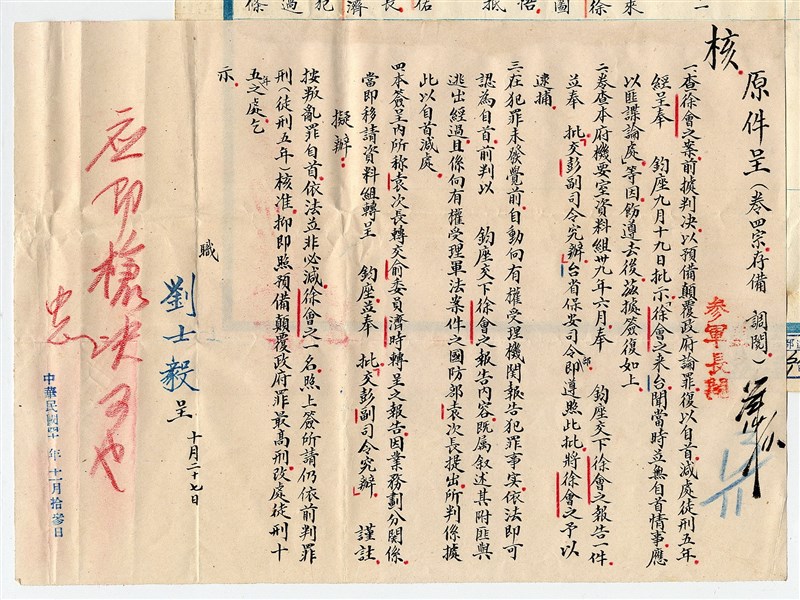 核
原件呈(卷四宗存備 調閱)
一、查徐會之案前據判決以預備顛覆政府論罪復以自首減處徒刑五年
經呈奉 鈞座九月十九日批示「徐會之來台聞當時並無自首情事應
以匪諜論處」等因飭遵去後茲據簽復如上
二、卷查本府機要室資料組卅九年六月奉 鈞座交下徐會之報告一件
並奉 批「交彭副司令究辦」台省保安司令部即遵照此批將徐會之予以
逮捕
三、在犯罪未發覺前自動向有權受理機關報告犯罪事實依法即可
認為自首前判以 鈞座交下徐會之報告內容既屬叙述其附匪與
逃出經過且係向有權受理軍法案件之國防部袁次長提出所判係據
此以自首減處
四、本簽呈內所称袁次長轉交俞委員濟時轉呈之報告因業務劃分關係
當即移請資料組轉呈 鈞座並奉 批「交彭副司令究辦」 謹註
擬辦:
按叛亂罪自首依法並非必減徐會之一名照上簽所請仍依前判罪
刑(徒刑五年)核准抑即照預備顛覆政府罪最高刑改處徒刑十
五年之處乞
示
職 劉士毅 呈 十月二十七日
參軍長閱
應即槍決可也
中正
中華民國四十年十一月拾參日